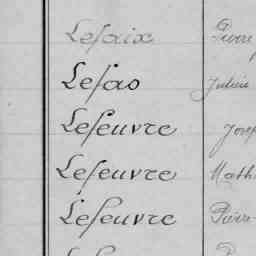 Lefaix Pierre
Lefas Julien
Lefeuvre Josep
Lefeuvre Math
Lefeuvre Pierre